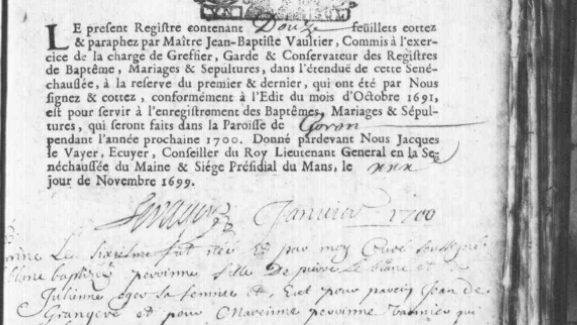 LE present Registre contenant Douze feuillets cottez
& paraphez par Maître Jean-Baptiste Vaultier, Commis à l'exer-
cice de la charge de Greffier, Garde & Conservateur des Registres
de Baptême, Mariages & Sepultures, dans l'étenduë de cette Sené-
chaussée, à la reserve du premier & dernier, qui ont été par Nous
signez & cottez, conformément à l'Edit du mois d'Octobre 1691,
est pour servir à l'enregistrement des Baptêmes, Mariages & Sépul-
tures, qui seront faits dans la Paroisse de Goron
pendant l'année prochaine 1700. Donné pardevant Nous Jacques
le Vayer, Ecuyer, Conseiller du Roy Lieutenant General en la Se-
néchaussée du Maine & Siége Présidial du Mans, le
jour de Novembre 1699.
Janvier 1700
Le sixiesme fut née & par moy Curé soussigné
baptizée perrinne fille De pierre Le blanc et de
Julianne sa femme Et pour parein Jean de
et pour Mareinne perrinne qui